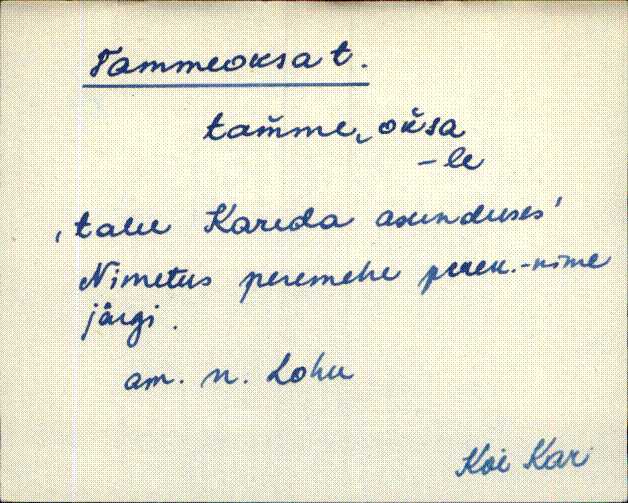 Tammeoksa t.
tam̆me‿ok̆sa
-le
'talu Kareda asunduses'
Nimetus peremehe peren.-nime
järgi.
am. n. Lohu
Koi Kar